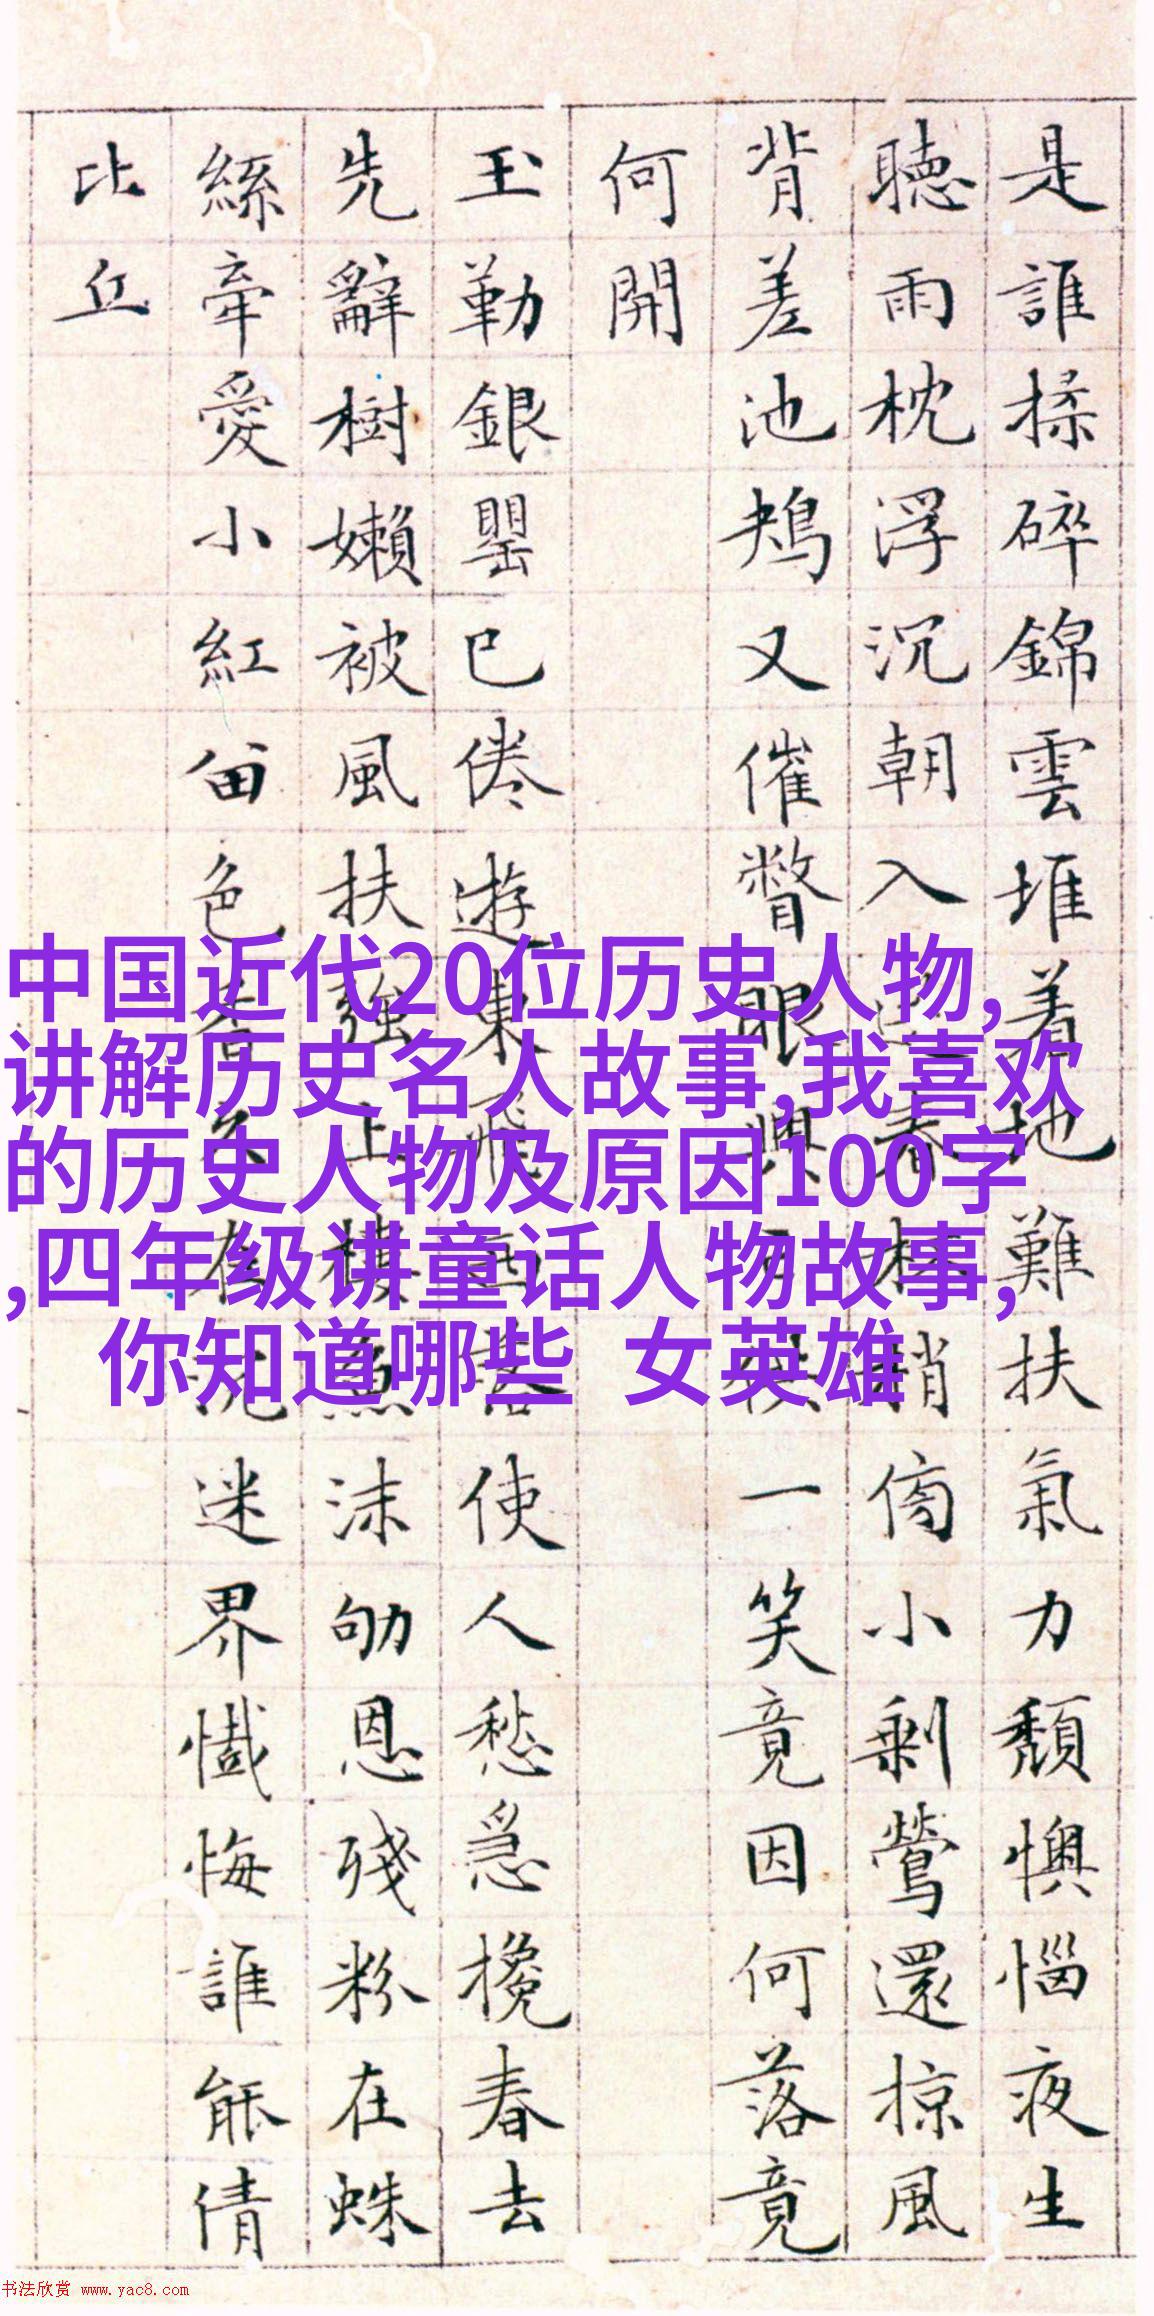 是誰揉碎錦雲堆着地難扶氣力頹懊惱夜生
聽雨枕浮沉朝入春杯梢傍小剩鶯還掠風
背差池又催瞥眼興一笑竟因何落竟
何開
玉勒銀罌已倦遊東飛西落使人愁急攙春去
先辭樹嬾被風扶強上樓魚沫劬恩殘粉在蛛
絲牽愛小紅留色香久在沈迷界懺悔誰能倩
比丘
中国近代20位历史人物,
讲解历史名人故事,我喜欢
的历史人物及原因100字
,四年级讲童话人物故事,
你知道哪些 女英雄
书法欣赏 www.yac8.com